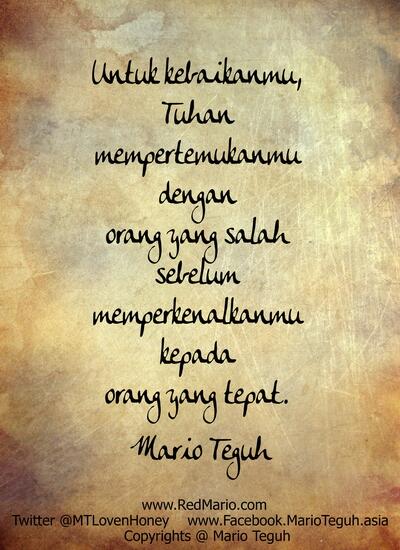 Untuk kebaikanmu,
Tuhan
mempertemukanmu
dengan
orang yang salah
sebelum
memperkenalkanmu
kepada
orang yang tepat.
Mario Teguh
www.RedMario.com
Twitter @MTLovenHoney www.Facebook.MarioTeguh.asia
Copyrights @ Mario Teguh